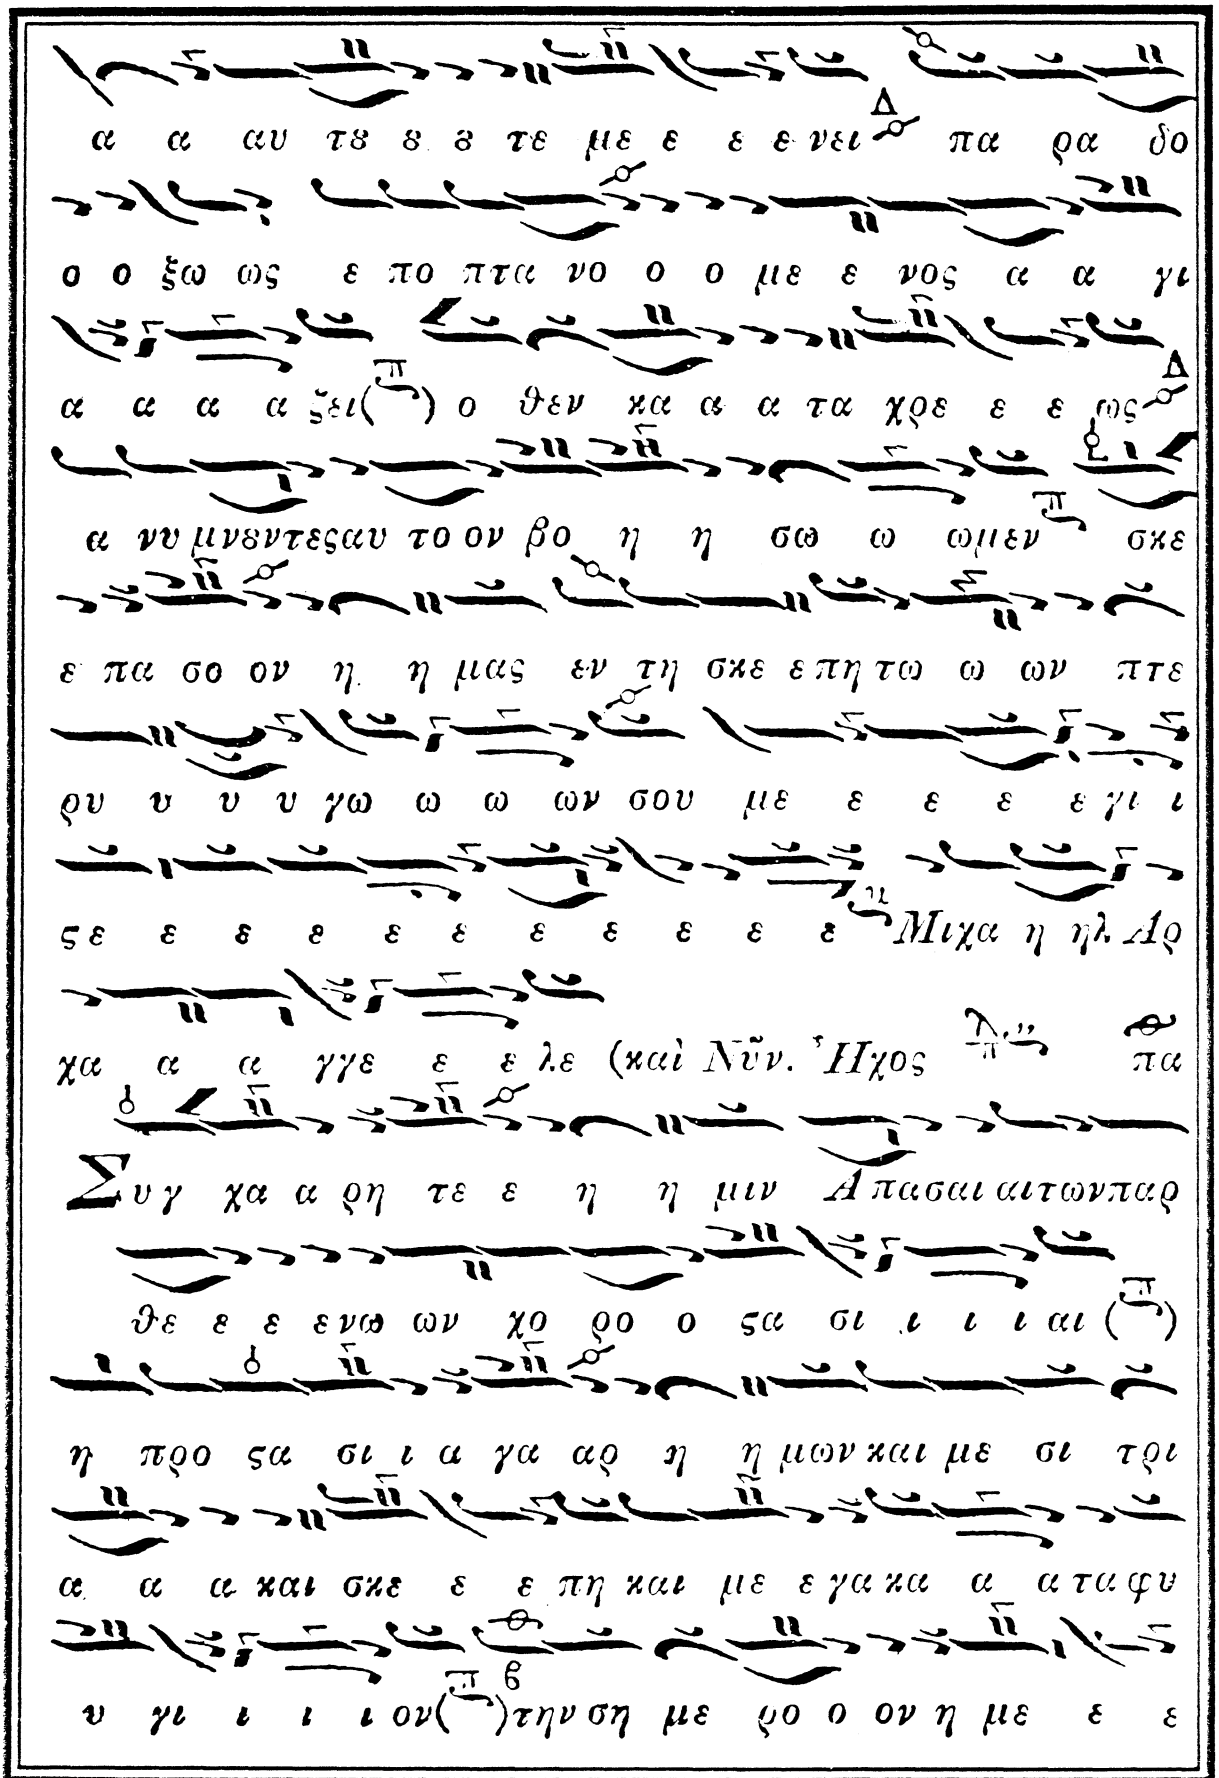 α α αυ τȣ ȣ ȣ τε με ε ε ε νει Δ πα ρα δο
ο ο ξω ως ε πο πτα νο ο ο με ε νος α α γι
α α α α ζει (π) ο θεν κα α α τα χρε ε ε ως Δ
α νυ μνȣντες αυ το ον βο η η σω ω ωμεν π σκε
ε πα σο ον η η μας εν τη σκε ε πη τω ω ων πτε
ρυ υ υ υ γω ω ω ων σου με ε ε ε ε γι ι
ϛε ε ε ε ε ε ε ε ε ε ε Μιχα η ηλ Αρ
χα α α γγε ε ε λε (καὶ Νῦν. Ἦχος πα
Συγ χα α ρη τε ε η η μιν Απασαι αι των παρ
θε ε ε ε νω ων χο ρο ο ϛα σι ι ι ι αι (π)
η προ ϛα σι ι α γα αρ η η μων και με σι τρι
α α α και σκε ε ε πη και με ε γα κα α α τα φυ
υ γι ι ι ι ον (π) την ση με ρο ο ον η με ε ε